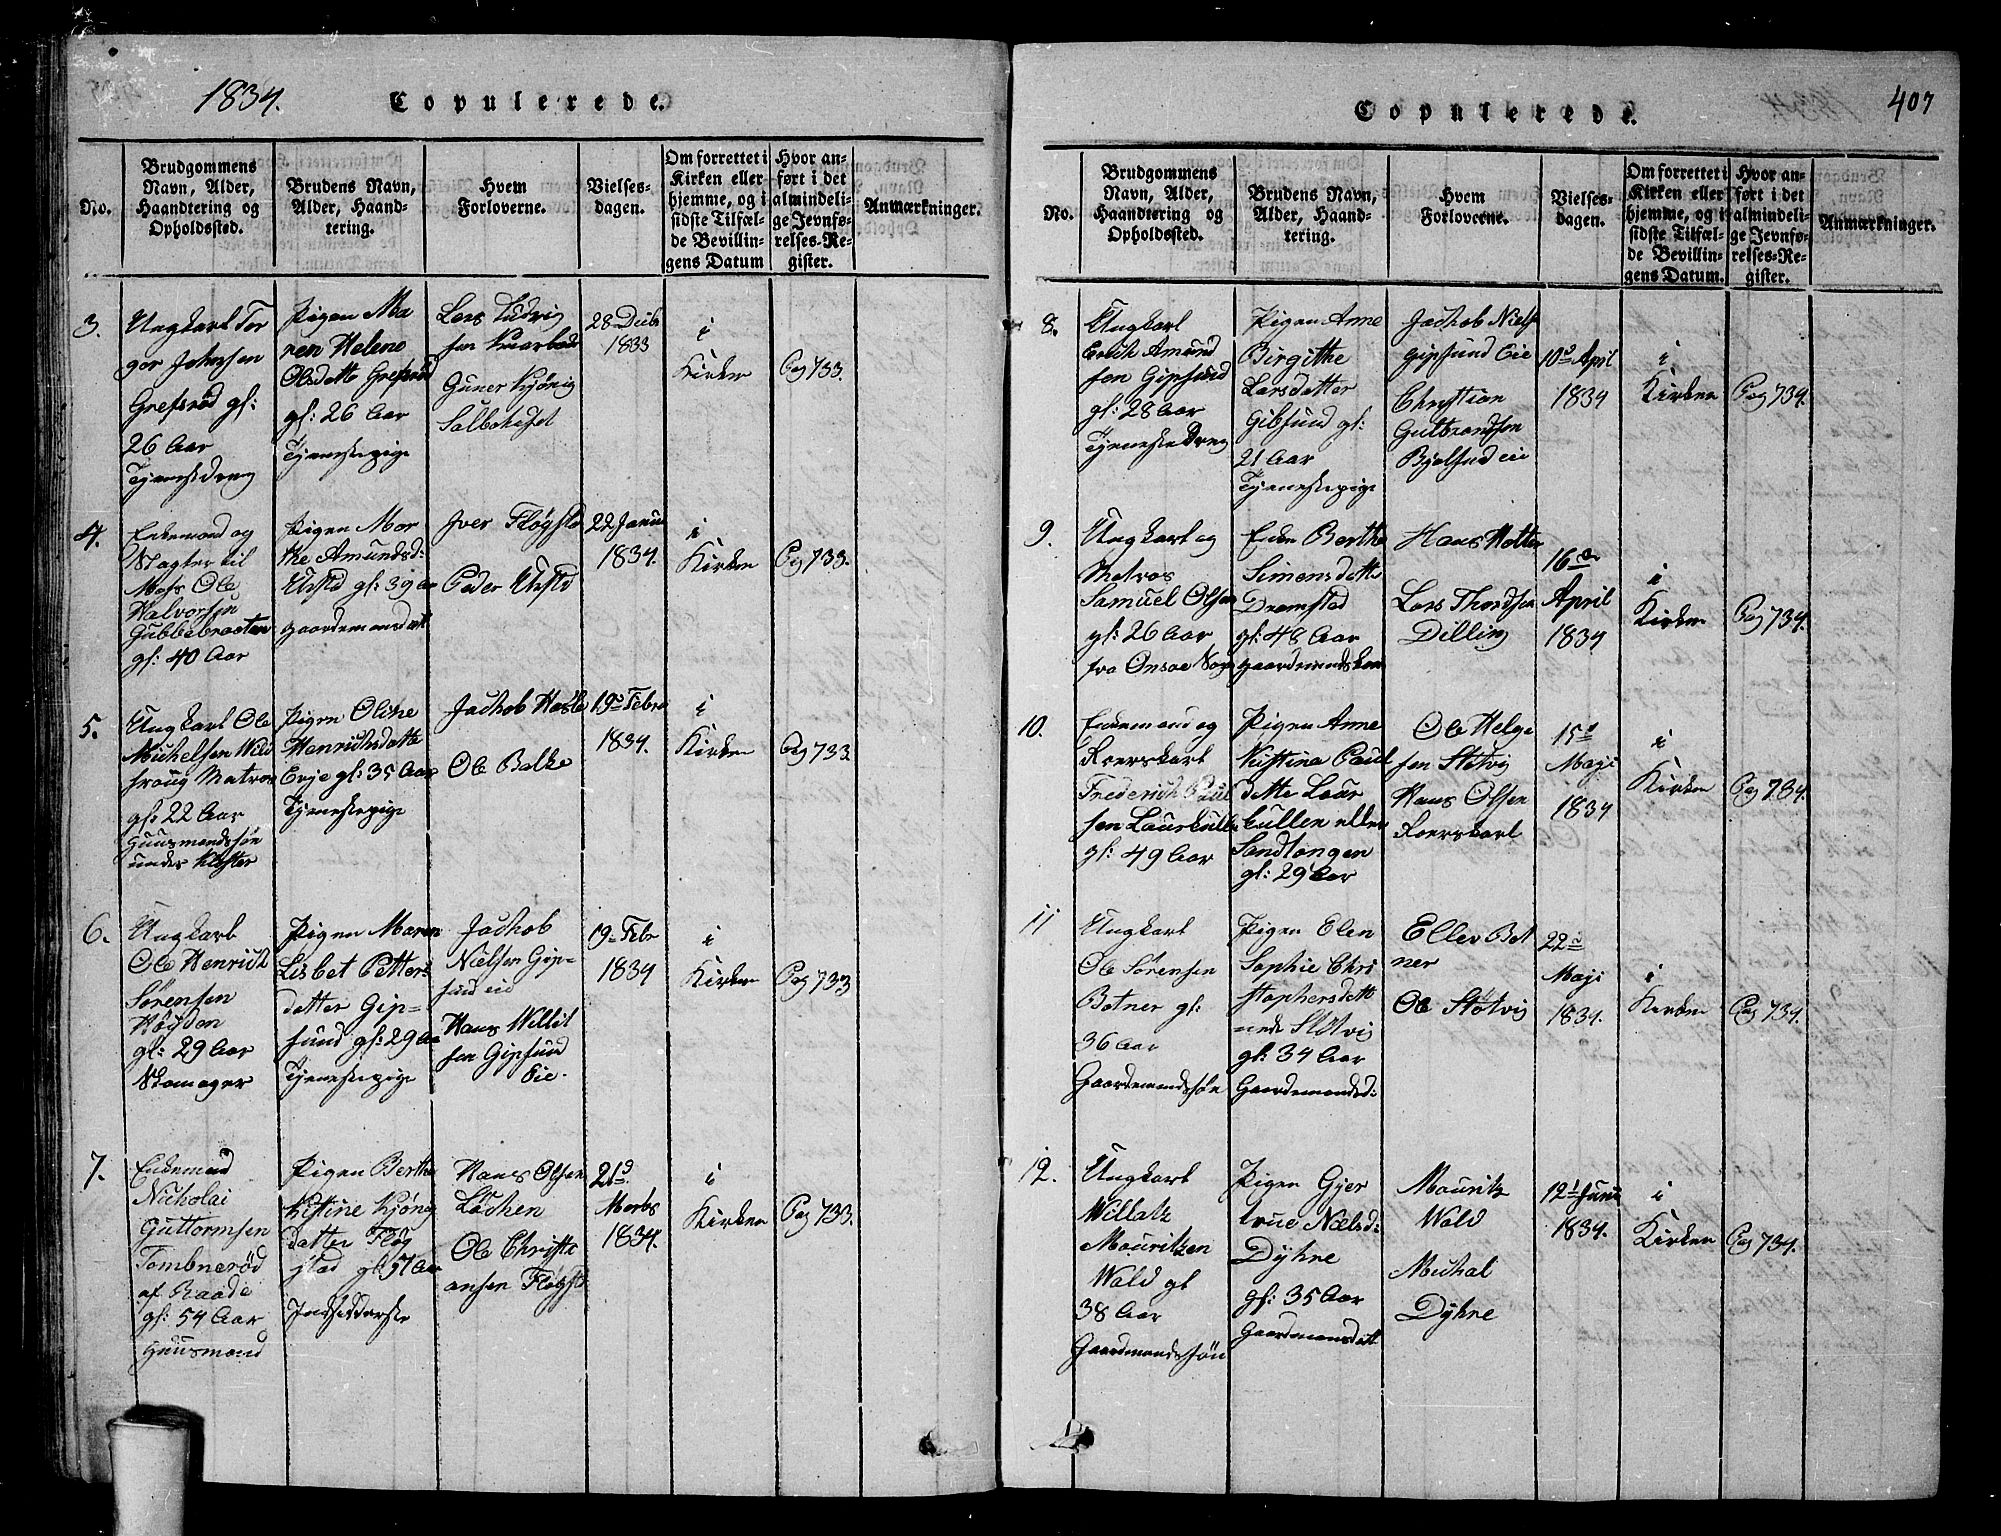 1834.
Copulerede.
No.
Brudgommens
Navn, Alder,
Haandtering og
Opholdssted.
Brudens Navn,
Alder, Haand-
tering.
Hvem
Forloverne.
Vielses-
dagen.
Om forrettet i
Kirken eller
hjemme, og i
sidste Tilfæl-
de Bevillin-
gens Datum
Hvor an-
ført i det
almindeli-
ge Jevnfø-
relses-Re-
gister.
Anmærkninger.
3.
Ungkarl Tor
ger Johnsen
Grefsrød gl:
26 Aar
Tjenestdreng
Pigen Ma
ren Helene
Olsdatte Grefsrød
gl: 26 Aar
Tjenestepige
Lars Ludvig
sen
Guner Kjönig
28 Debr
1833
i
Kirken
Pag 733.
4.
Enkemand og
Vagter til
Moss Ole
Halvorsen
Gubbebraaten
gl: 40 Aar
Pigen Mar
the Amundsd:
gl: 39 Aar
gaardemansdatt
Iver Fløgstd
Peder
22 Janu
1834.
i
Kirken
Pag 733.
5.
Ungkarl Ole
Michelsen
Matros
gl: 22 Aar
Huusmandssøn
under Kloster
Pigen Oline
Henrichsdatte
Evje gl: 35 Aar
Tjenestepige
Jachob
Ole Balke
19d Febr
1834.
i
Kirken
Pag 733
6.
Ungkarl
Ole Henrich
Sörensen
Høyden
gl: 29 Aar
Skomager
Pigen Maren
Lisbet Petters
datter Gip=
sund gl: 29 Aar
Tjenestepige
Jachob
Nielsen Gip=
sund eie
Hans Willel
sen Gipsund
Eie.
19 Febr
1834
i
Kirken
Pag 733
7.
Enkemand
Nicholai
Guttormsen
Tombnerød
af Raade
gl: 54 Aar
Huusmand
Pigen Berthe
Kistine Kjönig
datter Fløg
stad gl: 57 Aar
Indsidderske
Hans Olsen
Löchen
Ole Christi
ansen Fløgst
21d
Marts
1834.
i
Kirken
Pag 733.
407
Copulerede.
No.
Brudgommens
Navn, Alder,
Haandtering og
Opholdssted.
Brudens Navn,
Alder, Haand-
tering.
Hvem
Forloverne.
Vielses-
dagen.
Om forrettet i
Kirken eller
hjemme, og i
sidste Tilfæl-
de Bevillin-
gens Datum.
Hvor an-
ført i det
almindeli-
ge Jevnfø-
relses-Re-
gister.
Anmærkninger.
8.
Ungkarl
Amund
sen Gipsund
gl: 28 Aar
Tjenestedreng
Pigen Anne
Birgithe
Larsdatter
Gibsund gl:
21 Aar
Tjenestepige
Jachob Niels
Gipsund Eie
Christian
Gulbrandsen
eie
10d April
1834
i
Kirken
Pag 734.
9.
Ungkarl og
Matros
Samuel Olsen
gl: 26 Aar
fra Onsøe
Enken Berthe
Simensdatte
Dramstad
gl: 48 Aar
gaardmandskone
Hans Hetter
Lars Thordsen
Dilling
16de
April
1834
i
Kirken
Pag 734.
10.
Enkemand og
Roerskarl
Frederich Paul
sen Laurkulle
gl: 49 Aar
Pigen Anne
Kistina Paul
datte Laur
kullen eller
Sandtangen
gl: 29 Aar
Ole Helge
sen Støtvig
Hans Olsen
Roerskarl
15d
Maji
1834
i
Kirken
Pag 734.
11
Ungkarl
Ole Sörensen
Botner gl:
36 Aar
Gaardemandssøn
Pigen Elen
Sophie Chri
stophersdatt
Støtvig
gl: 34 Aar
Gaardemandsd:
Eller Bot
ner
Ole Støtvig
22d
Maji
1834.
i
Kirken
Pag 734.
12.
Ungkarl
Willatz
Mouritzen
Wald gl
38 Aar
Gaardmandssøn
Pigen Gjer
true Nielsd:
Dyhre
gl: 35 Aar
Gaardmansdatt
Mouritz
Wald
Michal
Dyhre
12t Juni
1834.
i
Kirken
Pag 734.